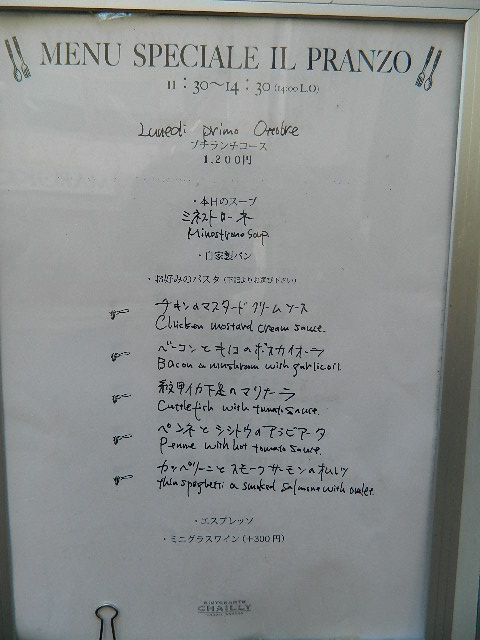 MENU SPECIALE IL PRANZO
11:30～14:30 (14:00 L.O)
Lunedi primo Ottobre
プチランチコース
1,200円
・本日のスープ
ミネストローネ
Minostrono Soup.
・自家製パン
・お好みのパスタ(下記よりお選び下さい)
チキンのマスタードクリームソース
Chicken mostard cream sauce.
ベーコンときのこのボスカイオーラ
Bacon & mushroom with garlic oil.
紋甲イカ下足のマリナーラ
Cuttlefish with tomato sauce.
ペンネとシシトウのアラビアータ
Penne with hot tomato sauce.
カッペリーニとスモークサーモンのオムレツ
thin spaghetti & smoked salmone with omlet.
・エスプレッソ
・ミニグラスワイン(+300円)
RISTORANTE
CHAILLY